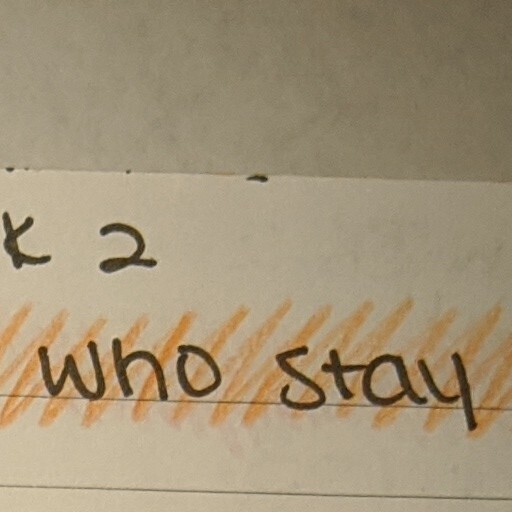 k 2
who stay